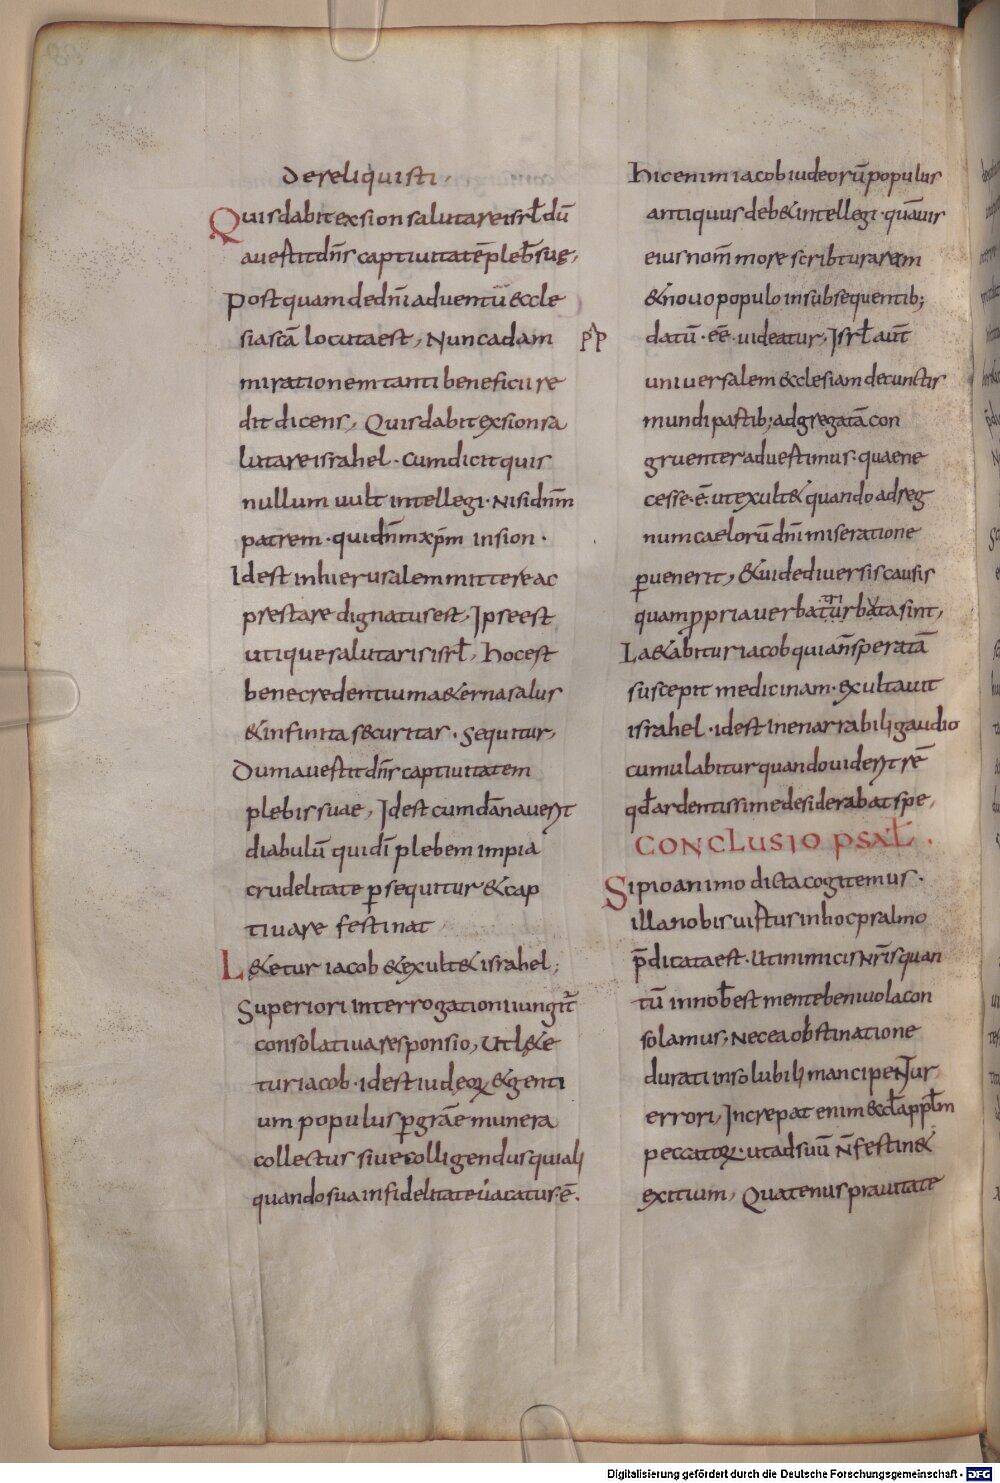 dereliquisti.
Quisdabit exsion salutare isrł dū
auertit dn̄s captiuitatē pleb̄ suę,
Postquam de dn̄i aduentū &ccle
sia sc̄a locuta est, Nunc ad am
mirationem tanti beneficii re
dit dicens, Quis dabit exsion sa
lutare israhel. Cum dicit quis
nullum uult intellegi. Nisi dn̄m
patrem. qui dn̄m xp̄m in sion.
Id est in hierusalem mittere ac
prestare dignatus est, Ipse est
utique salutaris isrł, hoc est
bene credentium a&erna salus
& infinita securitas. Sequitur,
Dum auertit dn̄s captiuitatem
plebis suae, Id est cum dānauerit
diabulū qui dī plebem impia
crudelitate ꝑsequitur & cap
tiuare festinat
L&etur iacob & exult& israhel;
Superiori interrogationi iungit̄
consolatiua responsio, Ut l&e
tur iacob. id est iudeoꝝ & genti
um populus ꝑ grām e munera
collectus siue colligendus qui ali
quando sua infidelitate uacatus ē.
hic enim iacob iudeorū populus
antiquus deb& intellegi. quāuis
eius nom̄ more scribturarum
& nouo populo in subsequentib;
pp̄
datū. ēē. uideatur, Isrł aut̄
uniuersalem ecclesiam de cunctis
mundi partib; adgregatā con
gruenter aduertimus. quae ne
cesse. ē. ut exult& quando ad reg
num caelorū dn̄i miseratione
ꝑuenerit, & uide diuersis causis
quam ꝓpria uerba turbata sint,
La&abitur iacob quia n̄ speratā
suscepit medicinam. exultauit
israhel. id est inenarrabili gaudio
cumulabitur quando uiderit rē
qd̄ ardentissime desiderabat spe,
CONCLUSIO PSAŁ.
Si pio animo dicta cogitemus.
illa nobis uirtus in hoc psalmo
p̄dicata est. Ut inimicis nr̄is quan
tū in nob̄ est mente beniuola con
solamus, Nec ea obstinatione
durati insolubili mancipeNTur
errori, Increpat enim eccł app̄łm
peccatoꝝ. ut ad suū n̄ festin&
exitium, Quatenus prauitate
Digitalisierung gefördert durch die Deutsche Forschungsgemeinschaft - DFG